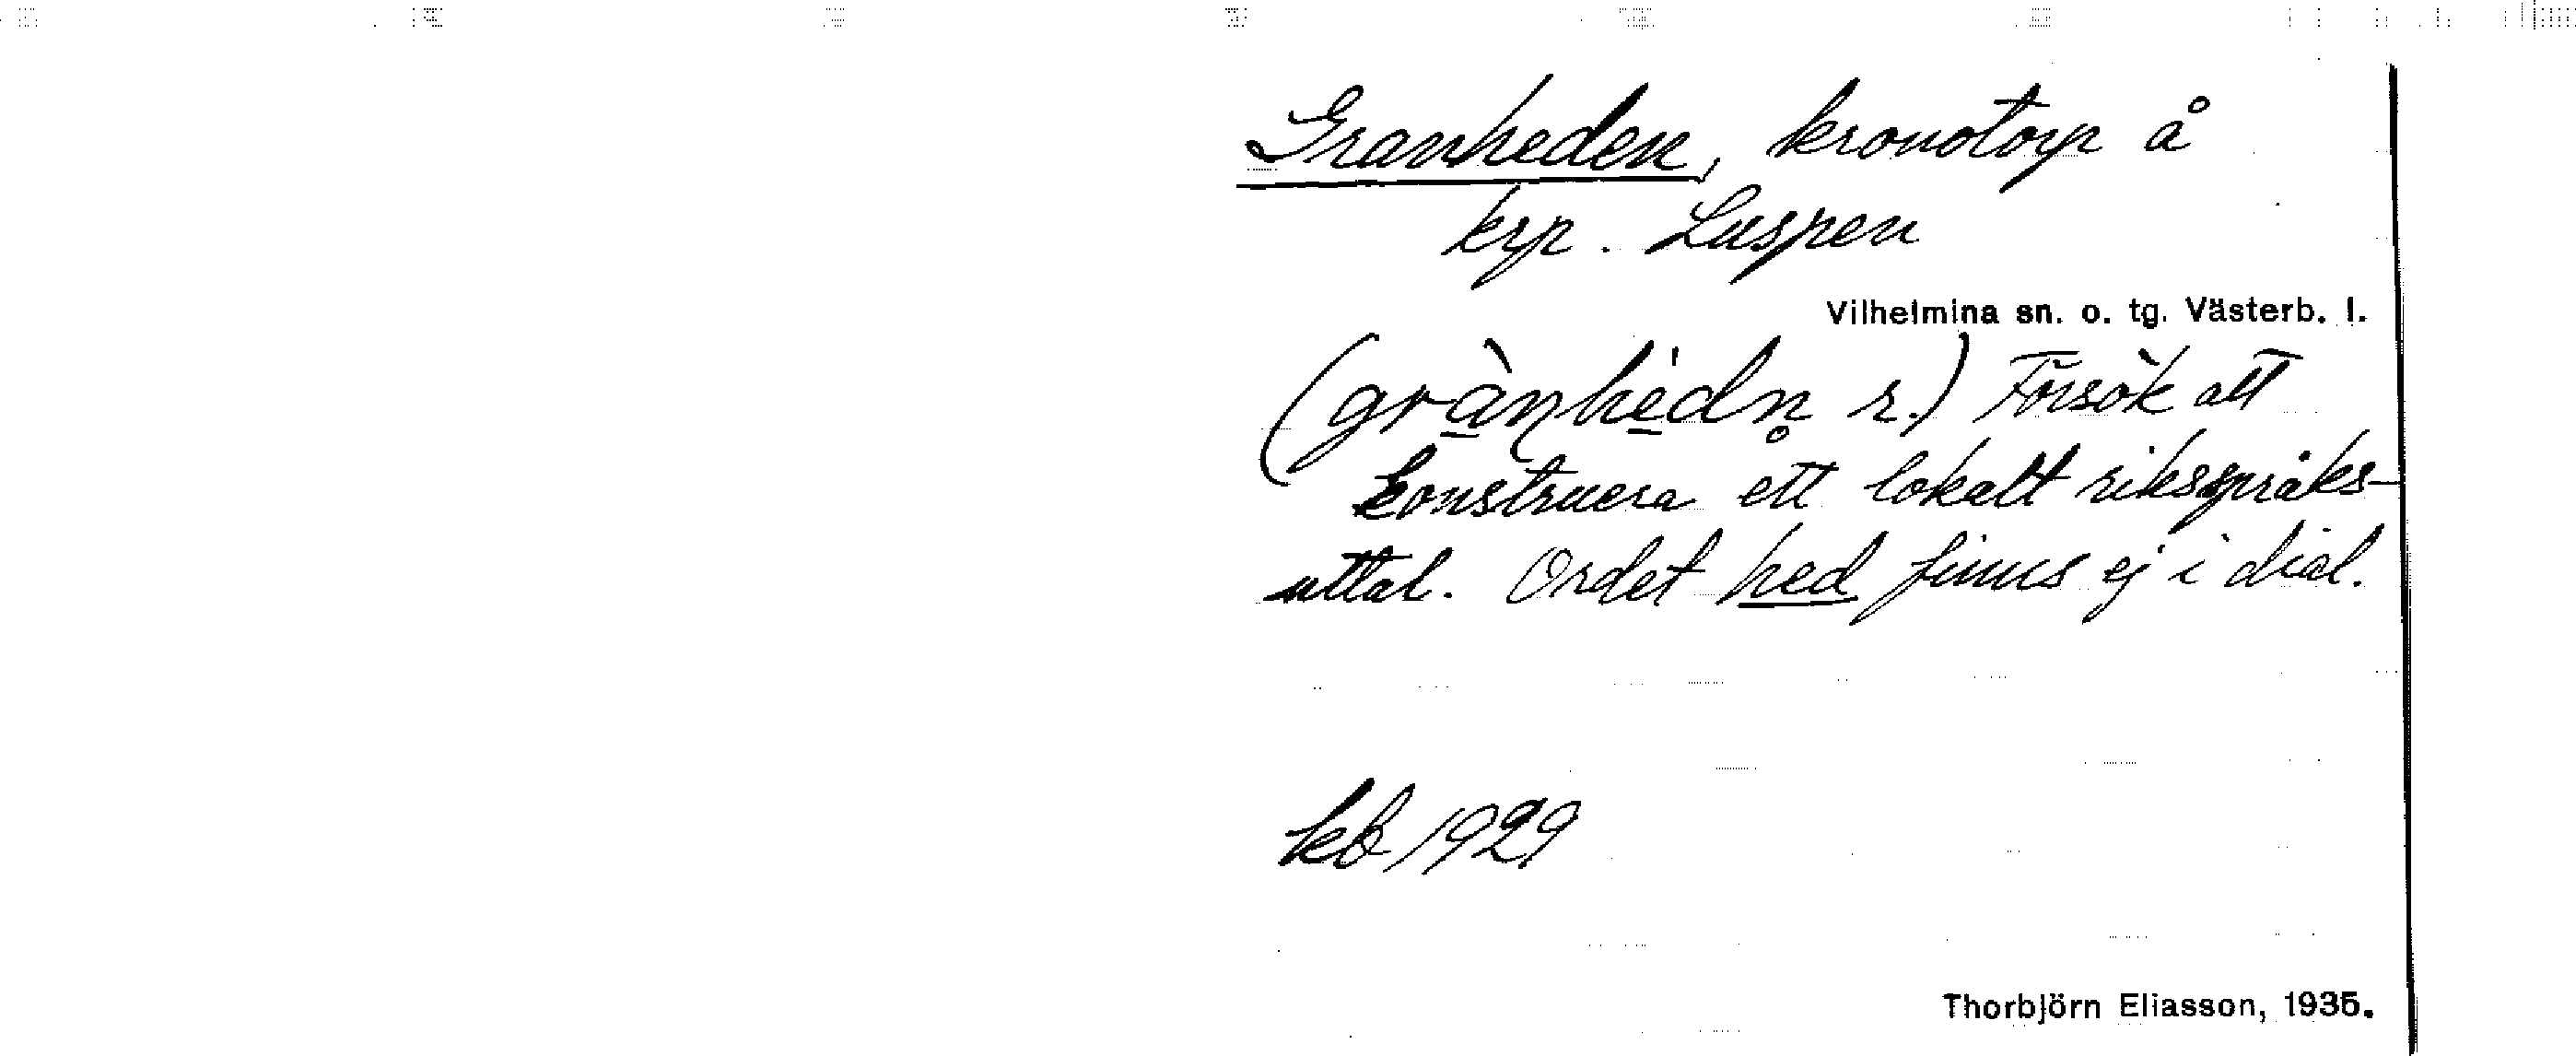 Granheden, kronotorp å
krp. Luspen
Vilhelmina sn. o. tg. Västerb. l.
(grànhèdn̥ r.) Försök att
konstruera ett lokalt riksspråks-
uttal. Ordet hed finns ej i dial.
kb 1929
Thorbjörn Eliasson, 1935.